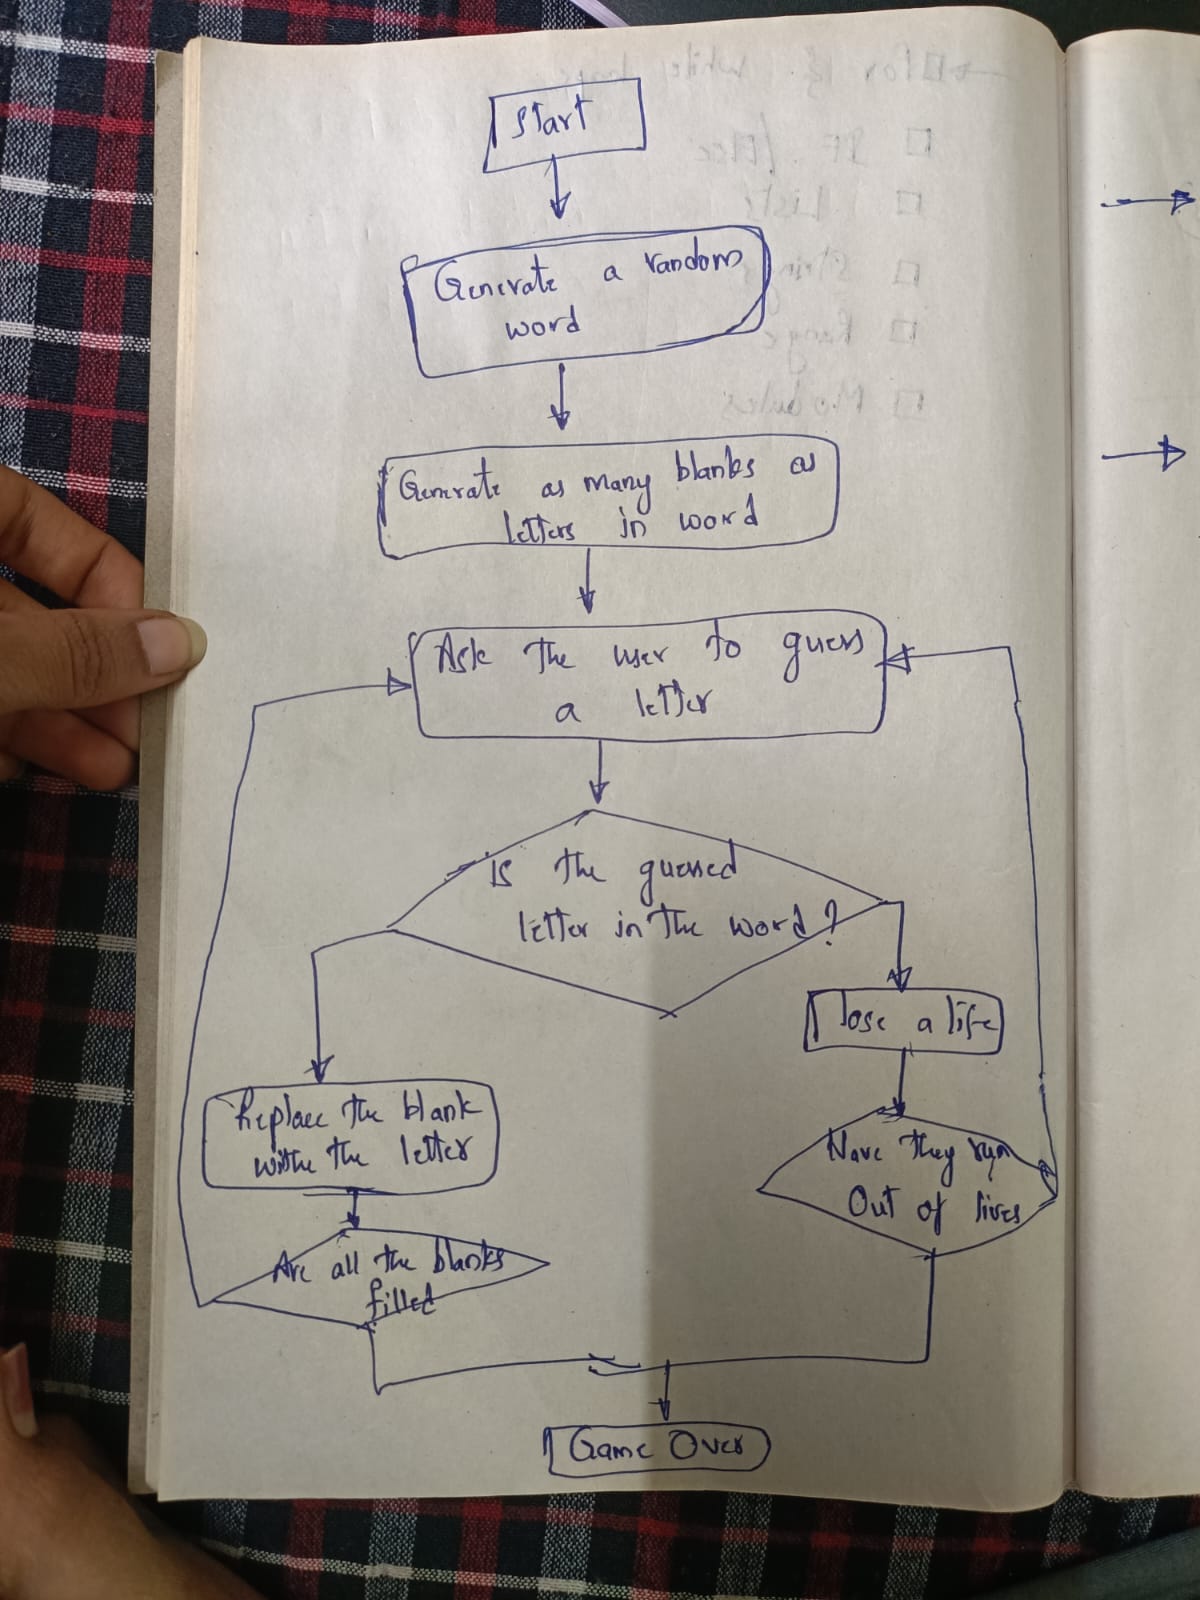 Start
Generate a random
word
Generate as many blanks as
letters in word
Ask the user to guess
a letter
Is the guessed
letter in the word?
lose a life
Replace the blank
withe the letter
Have they run
Out of lives
Are all the blanks
filled
Game Over